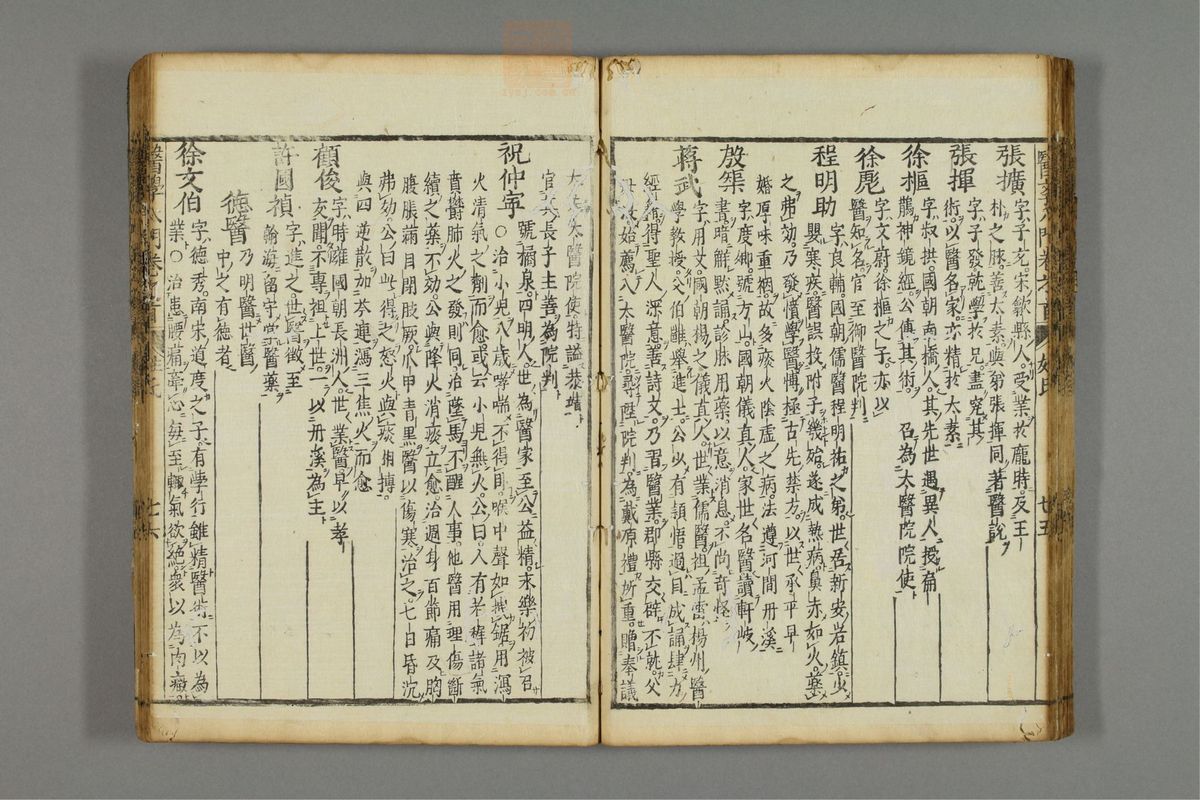 張擴 字子充宋歙縣人受業於龐時及王
朴之脉善太素與弟張揮同著醫說
張揮 字子發就學於兄盡究其
術以醫名家亦精於太素
徐樞 字叔拱國朝南橋人其先世遇異人授扁
鵲神鏡經公傳其術 召為太醫院院使
徐彪 字文蔚徐樞之子亦以
醫知名官至御醫院判
程明助 字良輔國朝儒醫程明祐之弟世居新安岩鎮少
嬰寒疾醫誤投附子幾殆遂成熱病鼻赤如火藥
之弗効乃發憤學醫博極古先禁方以世承平早
婚厚味重裀故多痰火陰虛之病法遵河間丹溪
殷榘 字度卿號方山國朝儀真人家世名醫讀軒岐
書暗解默診脉用藥以意消息不尚奇怪
蔣武 字用文國朝揚之儀真人世業儒醫祖孟雷揚州醫
學教授父伯雝舉進士公少有頴悟過目成誦肆力
經 得聖人深意善詩文乃習醫業郡縣交辟不就父
母 始薦入太醫院尋陞院判為戴原禮所重贈奉議
大夫太醫院使特謚恭靖
官其長子主善為院判
祝仲寧 號橘泉四明人世為醫家至公益精永樂初被召
○治小兒八歲哮喘不得臥喉中聲如拽鋸用瀉
火清氣之劑而愈或云小兒無火公曰人有老稺諸氣
賁欝肺火之發則同治墜馬不醒人事他醫用理傷斷
續之藥不効公與降火消痰立愈治週身百節痛及胸
腹脹滿目閉肢厥爪甲青黑醫以傷寒治之七日昏沉
弗効公曰此得之怒火與痰相搏
與四逆散加芩連瀉三焦火而愈
顧俊 字時雍國朝長洲人世業醫早以孝
友聞不專祖上世一以丹溪為主
許國禎 字進之世醫徵至
翰海留守掌醫藥
德醫 乃明醫世醫
中之有德者
徐文伯 字德秀南宋道度之子有學行雖精醫術不以為
業○治患腰痛牽心每至輒氣欲絕衆以為肉癥